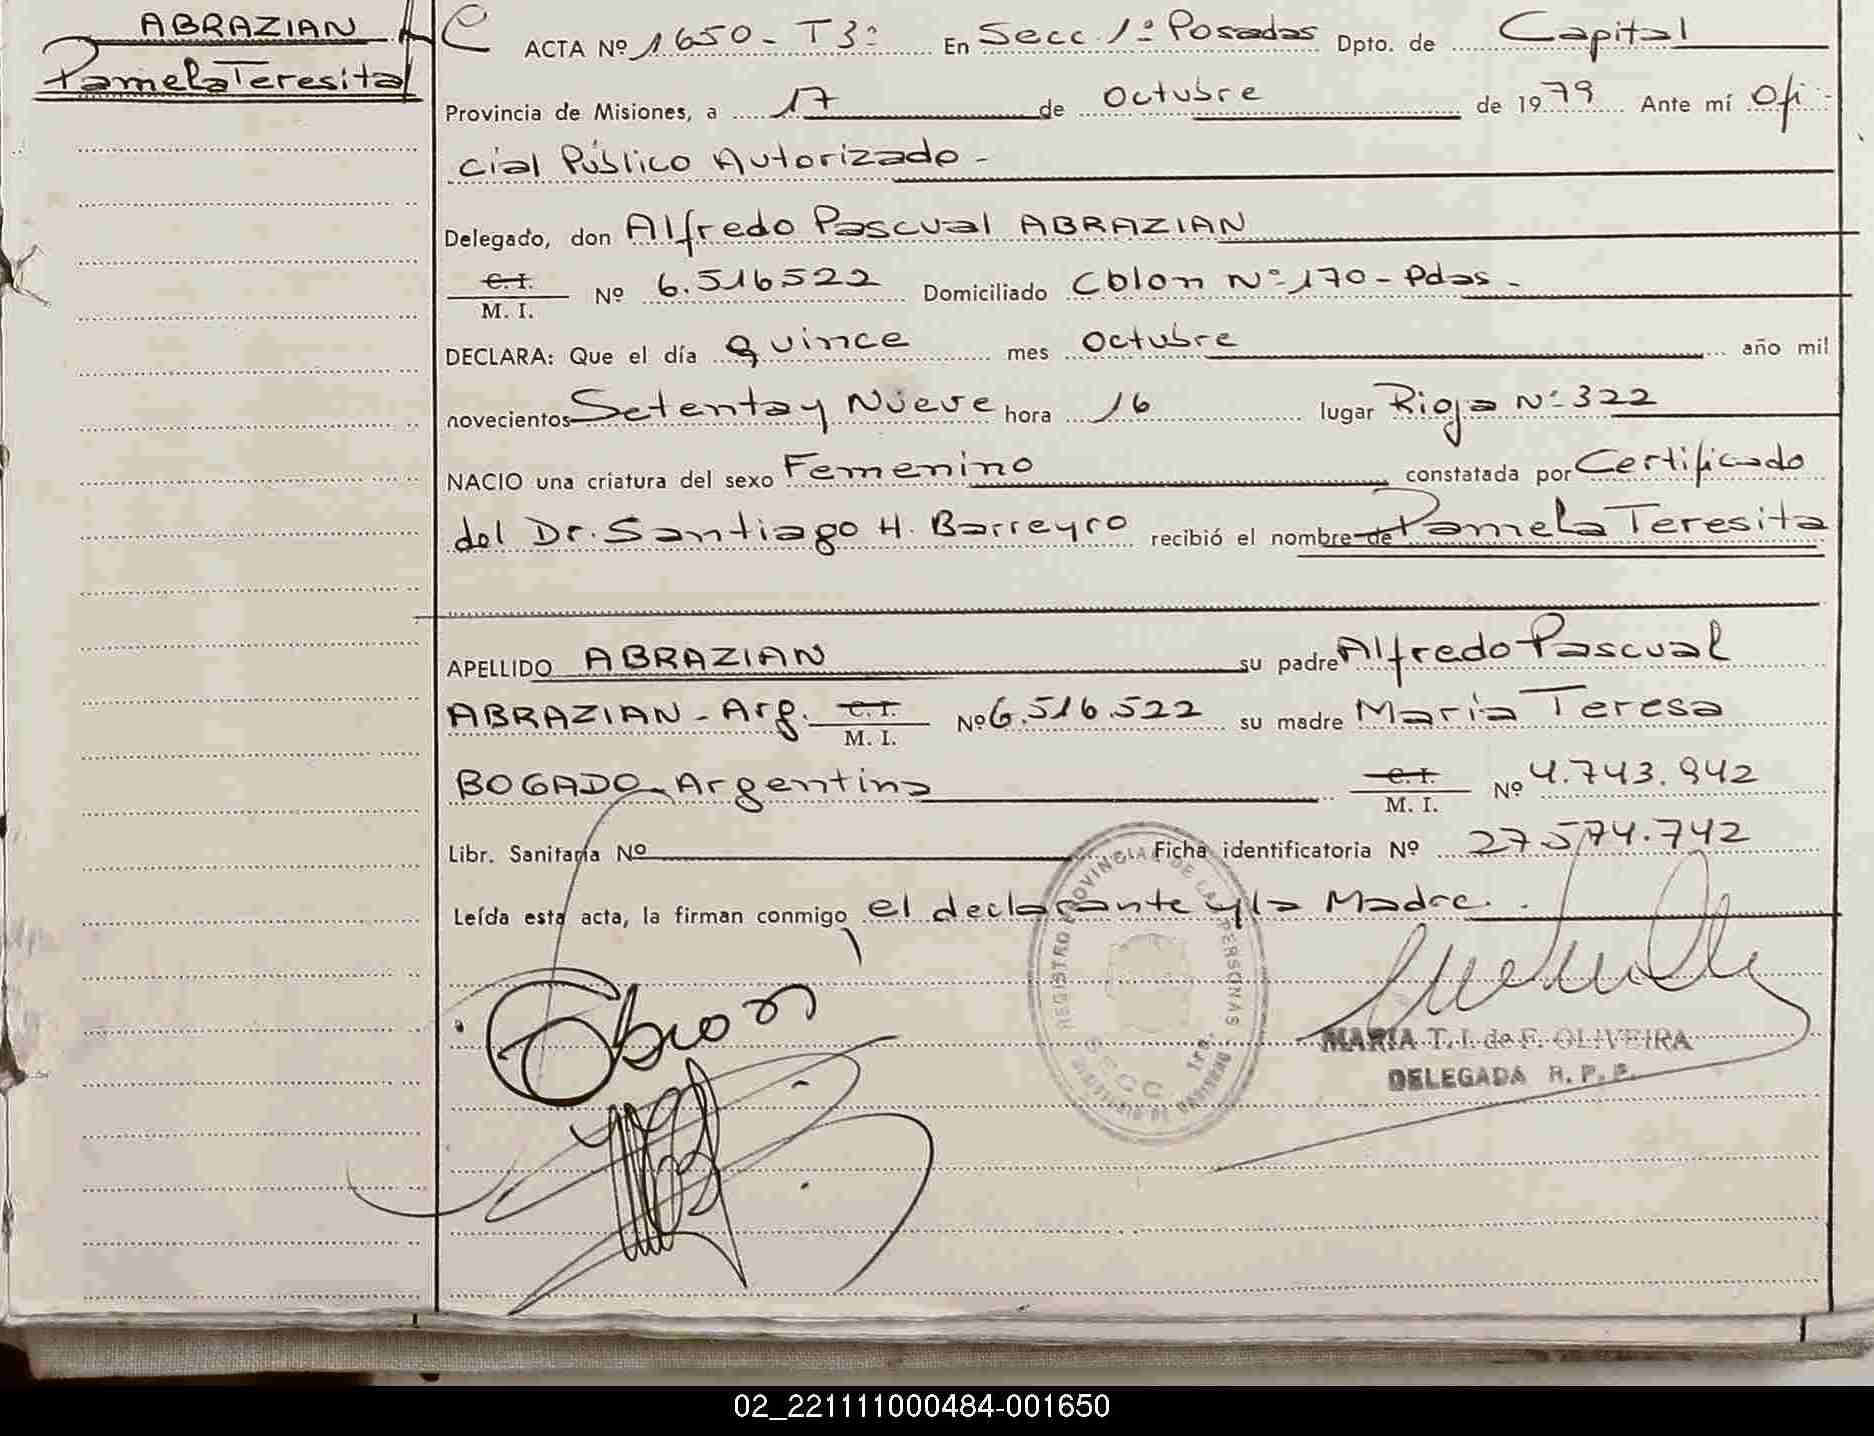 ABRAZIAN
Pamela Teresita
ACTA Nº 1.650 - T3º En Secc. 1ª Posadas Dpto. de Capital
Provincia de Misiones, a 17 de Octubre de 1979 Ante mí Ofi-
cial Público Autorizado -
Delegado, don Alfredo Pascual ABRAZIAN
C.I.
M. I. Nº 6.516522 Domiciliado Colon Nº 170 - Pdas -
DECLARA: Que el día quince mes Octubre año mil
novecientos Setenta y Nueve hora 16 lugar Rioja Nº 322
NACIO una criatura del sexo Femenino constatada por Certificado
del Dr. Santiago H. Barreyro recibió el nombre de Pamela Teresita
APELLIDO ABRAZIAN su padre Alfredo Pascual
ABRAZIAN - Arg. C.I. M. I. Nº 6.516.522 su madre Maria Teresa
BOGADO - Argentina C.I. M. I. Nº 4.743.942
Libr. Sanitaria Nº Ficha identificatoria Nº 27.574.742
Leída esta acta, la firman conmigo el declarante y la Madre.
REGISTRO PROVINCIAL DE LAS PERSONAS
SECC. 1ra.
MARIA T. I. de F. OLIVEIRA
DELEGADA R. P. P.
02_221111000484-001650